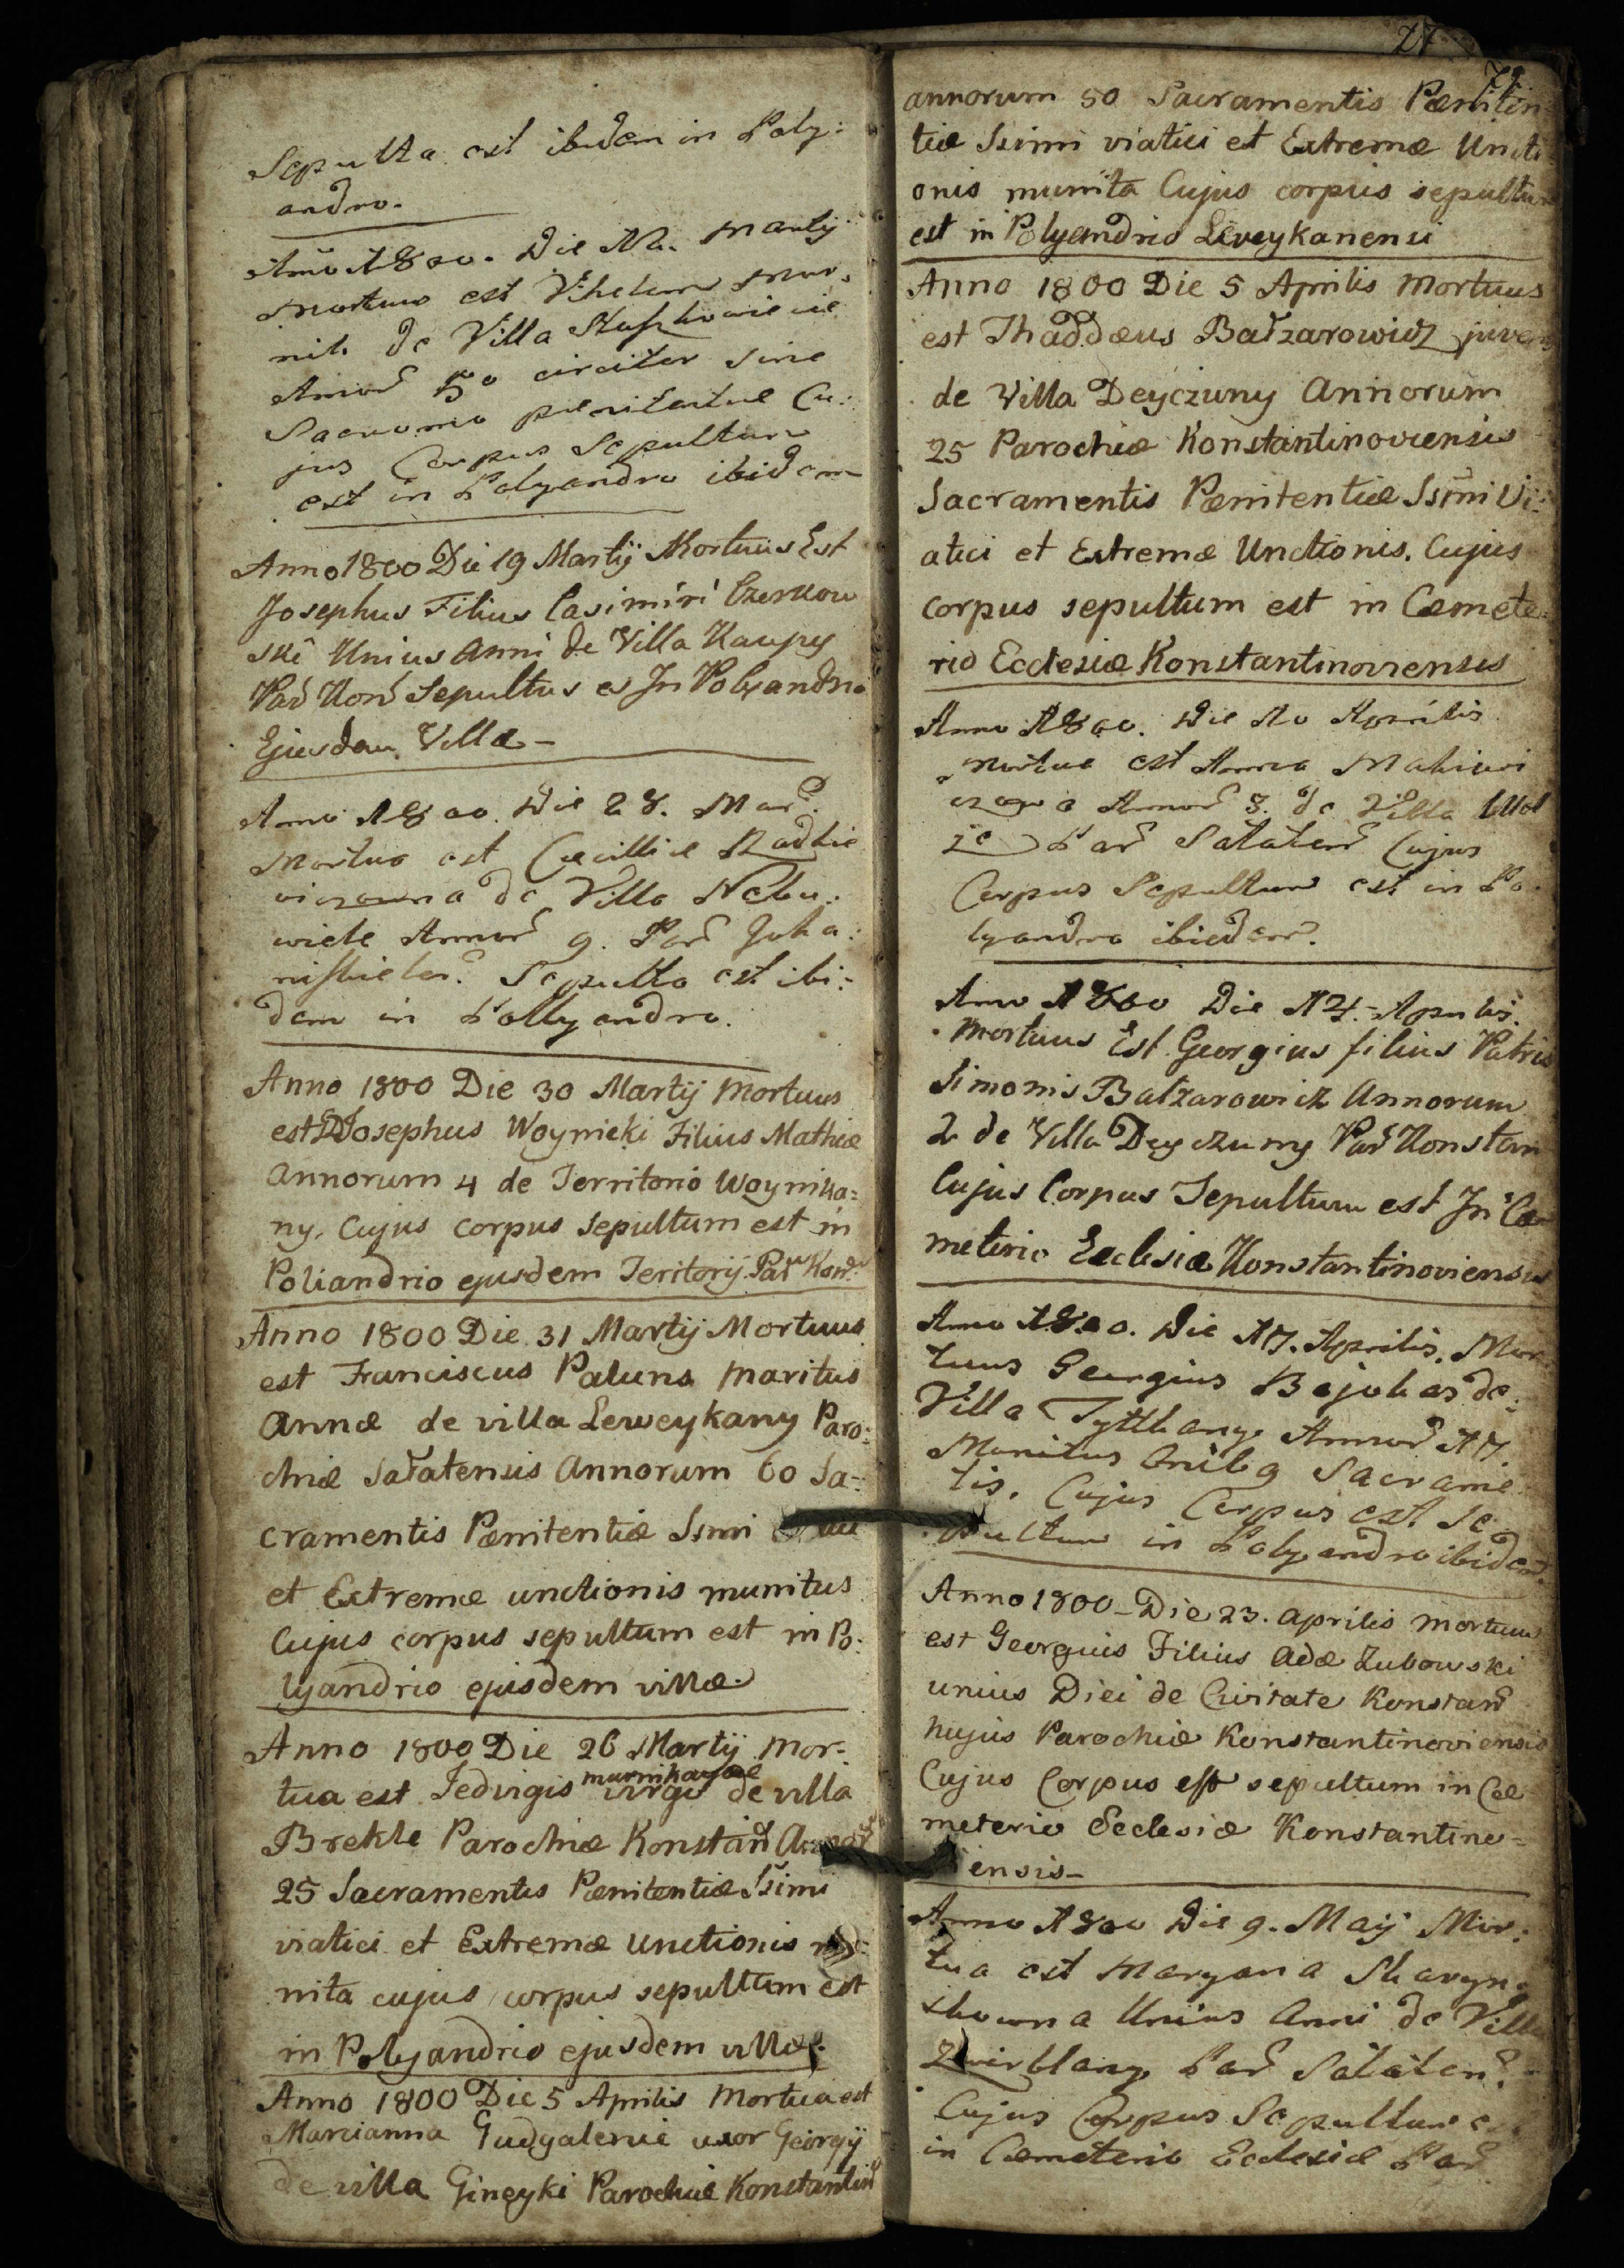 Sepulta est ibidem in Poly:
andro.
Año 1800. Die Martij
Mortuus est
de Villa
Annor̃ 50 circiter sine
Sacro pœnitentiæ Cu:
jus Corpus Sepultum
est in Polyandro ibidem
Anno 1800 Die 19 Martij Mortuus Est
Josephus Filius Casimiri Czerkow
ski Unius Anni de Villa Kaupy
Par̃ Kon̄ Sepultus es In Polyandrio
Ejusdem Villæ -
Anno 1800. Die 28. Mar̃.
Mortua est Cæcilliæ Radkie
viczowna de Villa
Annor̃ 9. Par̃ Joha:
Sepulta est ibi:
dem in Pollyandro.
Anno 1800 Die 30 Martij Mortuus
est Josephus Woynicki Filius Mathiæ
Annorum 4 de Territorio Woynika=
ny. Cujus corpus sepultum est in
Poliandrio ejusdem Teritorij. Par Kon
Anno 1800 Die 31 Martij Mortuus
est Franciscus Paluns Maritus
Annæ de villa Leweykany Paro:
chiæ Sałatensis Annorum 60 Sa=
cramentis Pænitentiæ Ssmi
et Extremæ unctionis munitus
Cujus corpus sepultum est in Po:
lyandrio ejusdem villæ.
Anno 1800 Die 26 Martij Mor-
tua est Jedvigis virgo de villa
Brekle Parochiæ Konstan̄
25 Sacramentis Pænitentiæ Ssimi
viatici et Extremæ Unctionis mu:
nita cujus corpus sepultum est
in Polyandrio ejusdem villæ.
Anno 1800 Die 5 Aprilis Mortua est
Marcianna Gudgalenie uxor Georgij
de villa Gineyki Parochiæ Konstantin
27
annorum 50 Sacramentis Pæniten
tiæ Ssimi viatici et Extremæ Uncti
onis munita Cujus corpus sepultum
est in Polyandrio Leveykanensi
Anno 1800 Die 5 Aprilis Mortuus
est Thaddæus Bałzarowicz juvenis
de Villa Deyczuny Annorum
25 Parochiæ Konstantinoviensis
Sacramentis Pænitentiæ Ssimi Vi:
atici et Extremæ Unctionis. Cujus
corpus sepultum est in Cæmete
rio Ecclesiæ Konstantinoviensis
Anno 1800. Die 10 Aprilis
Mortua est Anna
Annor̃ 8. de Villa
Par̃ Sałaten̄ Cujus
Corpus Sepultum est in Po
lyandro ibidem.
Anno 1800 Die 14. Aprilis.
Mortuus Est Georgius filius Patris
Simonis Bałzarowicz Annorum
2 de Villa Deyczuny Par̃ Konstan
Cujus Corpus Sepultum est In Cæ
meterio Ecclesiæ Konstantinoviensis
Anno 1800. Die 17. Aprilis. Mor
tuus Georgius de:
Villa Annor̃ 17
Munitus Sacrame
tis. Cujus Corpus est Se
pultum in Polyandro ibidem.
Anno 1800 - Die 23. Aprilis mortuus
est Georgius Filius Adæ Zubowski
unius Diei de Civitate Konstan̄
hujus Parochiæ Konstantinoviensis
Cujus Corpus est sepultum in Cæ
meterio Ecclesiæ Konstantino=
iensis -
Anno 1800 Die 9. Maij Mor:
tua est Maryana
Unius Anni de Villa
Par̃ Sałaten̄.
Cujus Corpus Sepultum
in Cæmeterio Ecclesiæ Par̃